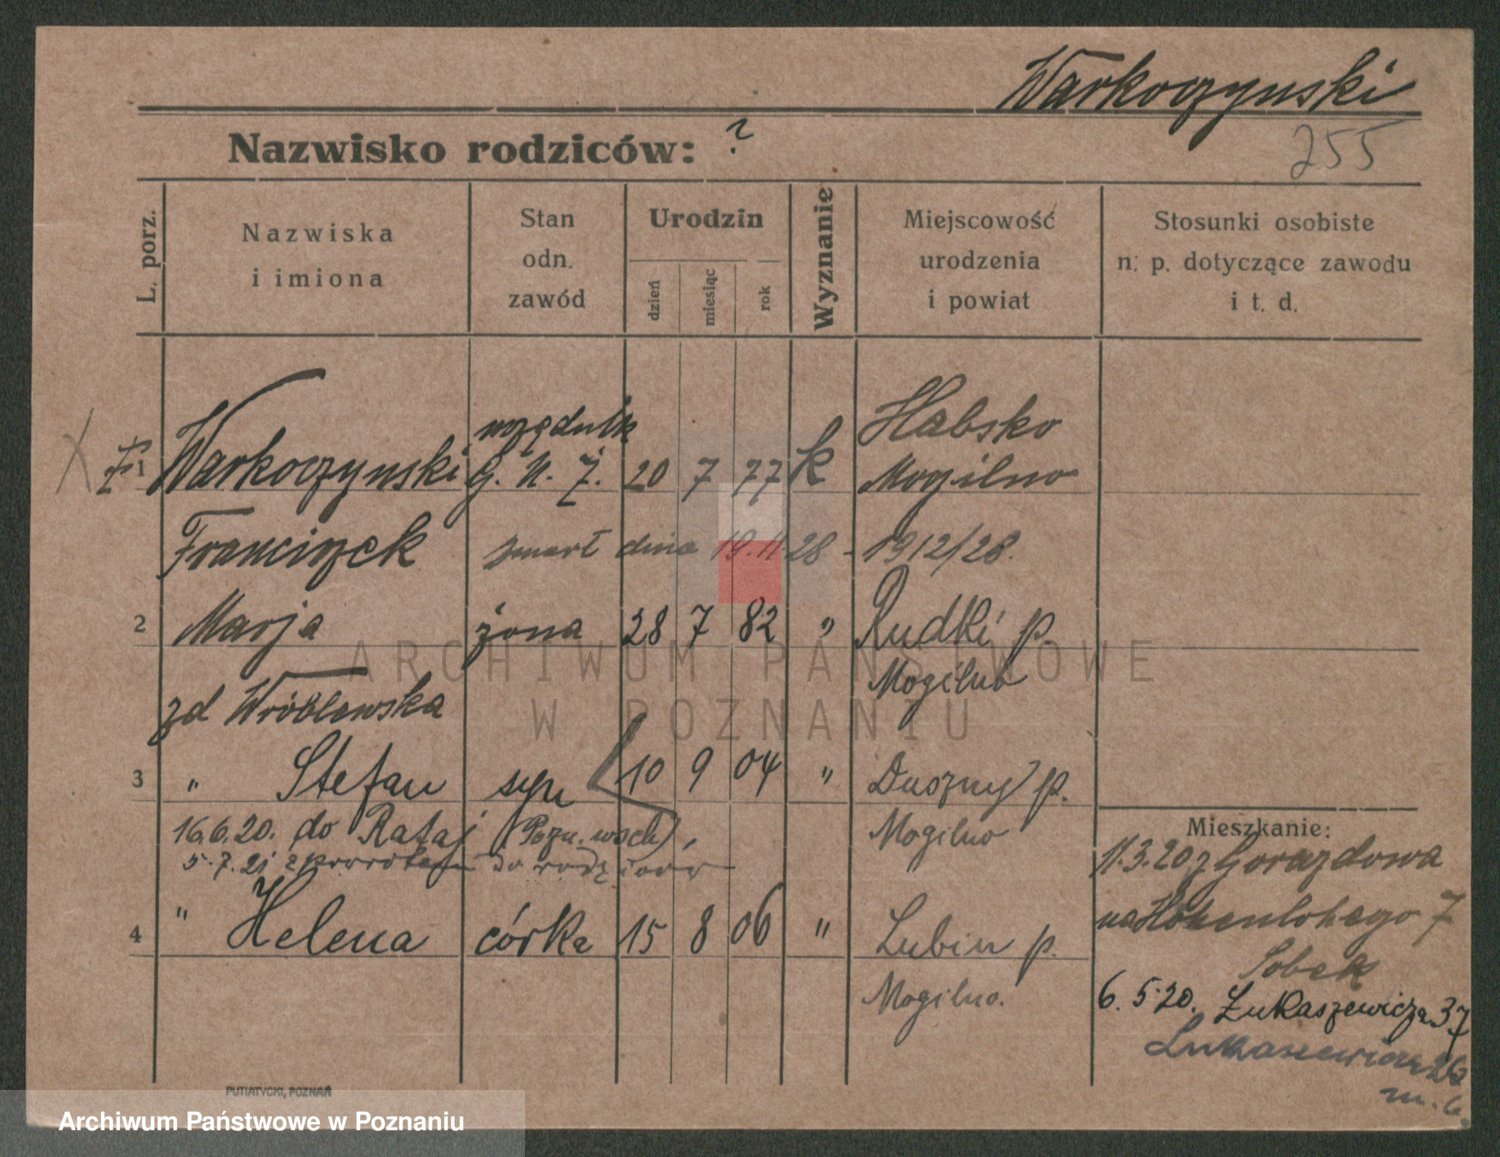 Warkoczynski
Nazwisko rodziców: ?
255
L. porz.
Nazwiska
i imiona
Stan
odn.
zawód
Urodzin
dzień
miesiąc
rok
Wyznanie
Miejscowość
urodzenia
i powiat
Stosunki osobiste
n. p. dotyczące zawodu
i t. d.
urzędnik Habsko
1 Warkoczynski G. U. Z. 20 7 77 k Mogilno
Franciszek zmarł dnia 19.11.28 - 1912/28.
2 Marja żona 28 7 82 " Rudki p.
zd Wróblewska Mogilno
3 " Stefan syn 10 9 04 " Duszny p.
16.6.20. do Rataj (Pozn. wsch), Mogilno
5.7.21 z powrotem do rodziców
4 " Helena córka 15 8 06 " Lubin p.
Mogilno.
Mieszkanie:
11.3.20 z Gorazdowa
na Hohenlohego 7
Sobek
6.5.20. Łukaszewicza 37
Łukaszewicza 26
m. 6.
PUTIATYCKI, POZNAŃ
ARCHIWUM PAŃSTWOWE
W POZNANIU
Archiwum Państwowe w Poznaniu